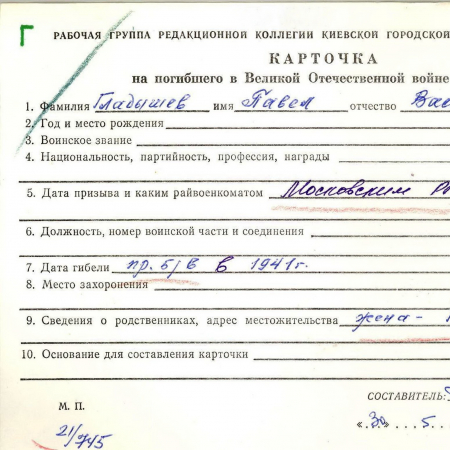 Г
РАБОЧАЯ ГРУППА РЕДАКЦИОННОЙ КОЛЛЕГИИ КИЕВСКОЙ ГОРОДСКОЙ
КАРТОЧКА
на погибшего в Великой Отечественной войне
1. Фамилия Гладышев имя Павел отчество Вас
2. Год и место рождения
3. Воинское звание
4. Национальность, партийность, профессия, награды
5. Дата призыва и каким райвоенкоматом Московским Р
6. Должность, номер воинской части и соединения
7. Дата гибели пр. б/в в 1941 г.
8. Место захоронения
9. Сведения о родственниках, адрес местожительства жена -
10. Основание для составления карточки
СОСТАВИТЕЛЬ:
М. П.
«30» 5.
21/745